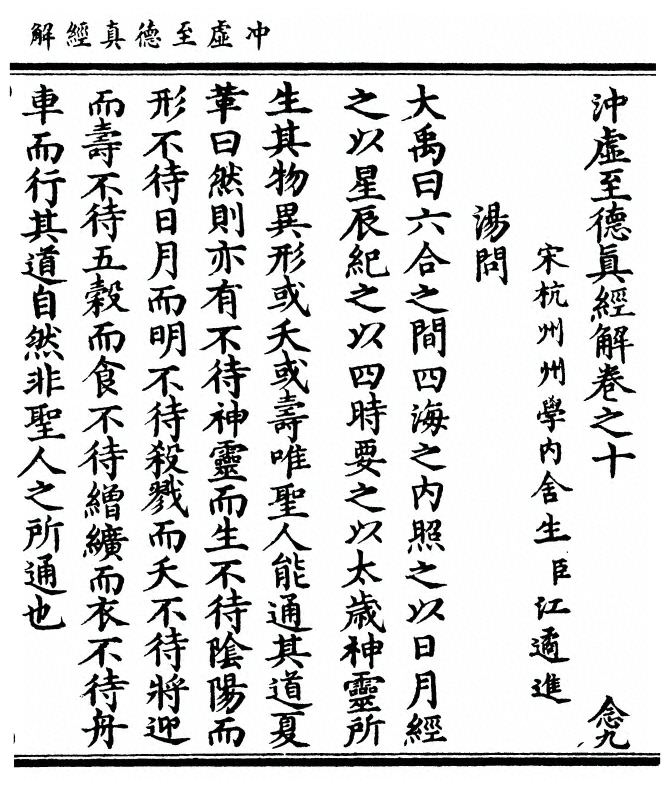 冲虛至德真經解
沖虛至德眞經解卷之十
念九
宋杭州州學內舍生臣江遹進
湯問
大禹曰六合之間四海之內照之以日月經
之以星辰紀之以四時要之以太歲神靈所
生其物異形或夭或壽唯聖人能通其道夏
革曰然則亦有不待神靈而生不待陰陽而
形不待日月而明不待殺戮而夭不待將迎
而壽不待五穀而食不待繒纊而衣不待舟
車而行其道自然非聖人之所通也